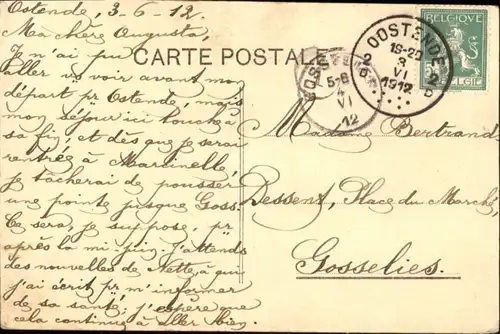 Ostende, 3-6-12.
Ma chère Augusta,
Je n'ai pu
aller vs voir avant mon
départ pr Ostende, mais
mon séjour ici touche à
sa fin, et dès que je serai
rentré à Marcinelle,
je tâcherai de pousser
une pointe jusque Goss.
Ce sera, je suppose, pr
après la mi-juin. J'attends
des nouvelles de Nette à qui
j'ai écrit pr m'informer
de sa santé; j'espère que
cela continue à aller bien.
CARTE POSTALE
GOSSELIES
5-6
4
VI
12
OOSTENDE
2 2
19-20
3
VI
1912
D
BELGIQUE
5 5
BELGIË
Madame Bertrand-
Dessent, Place du Marché,
Gosselies.